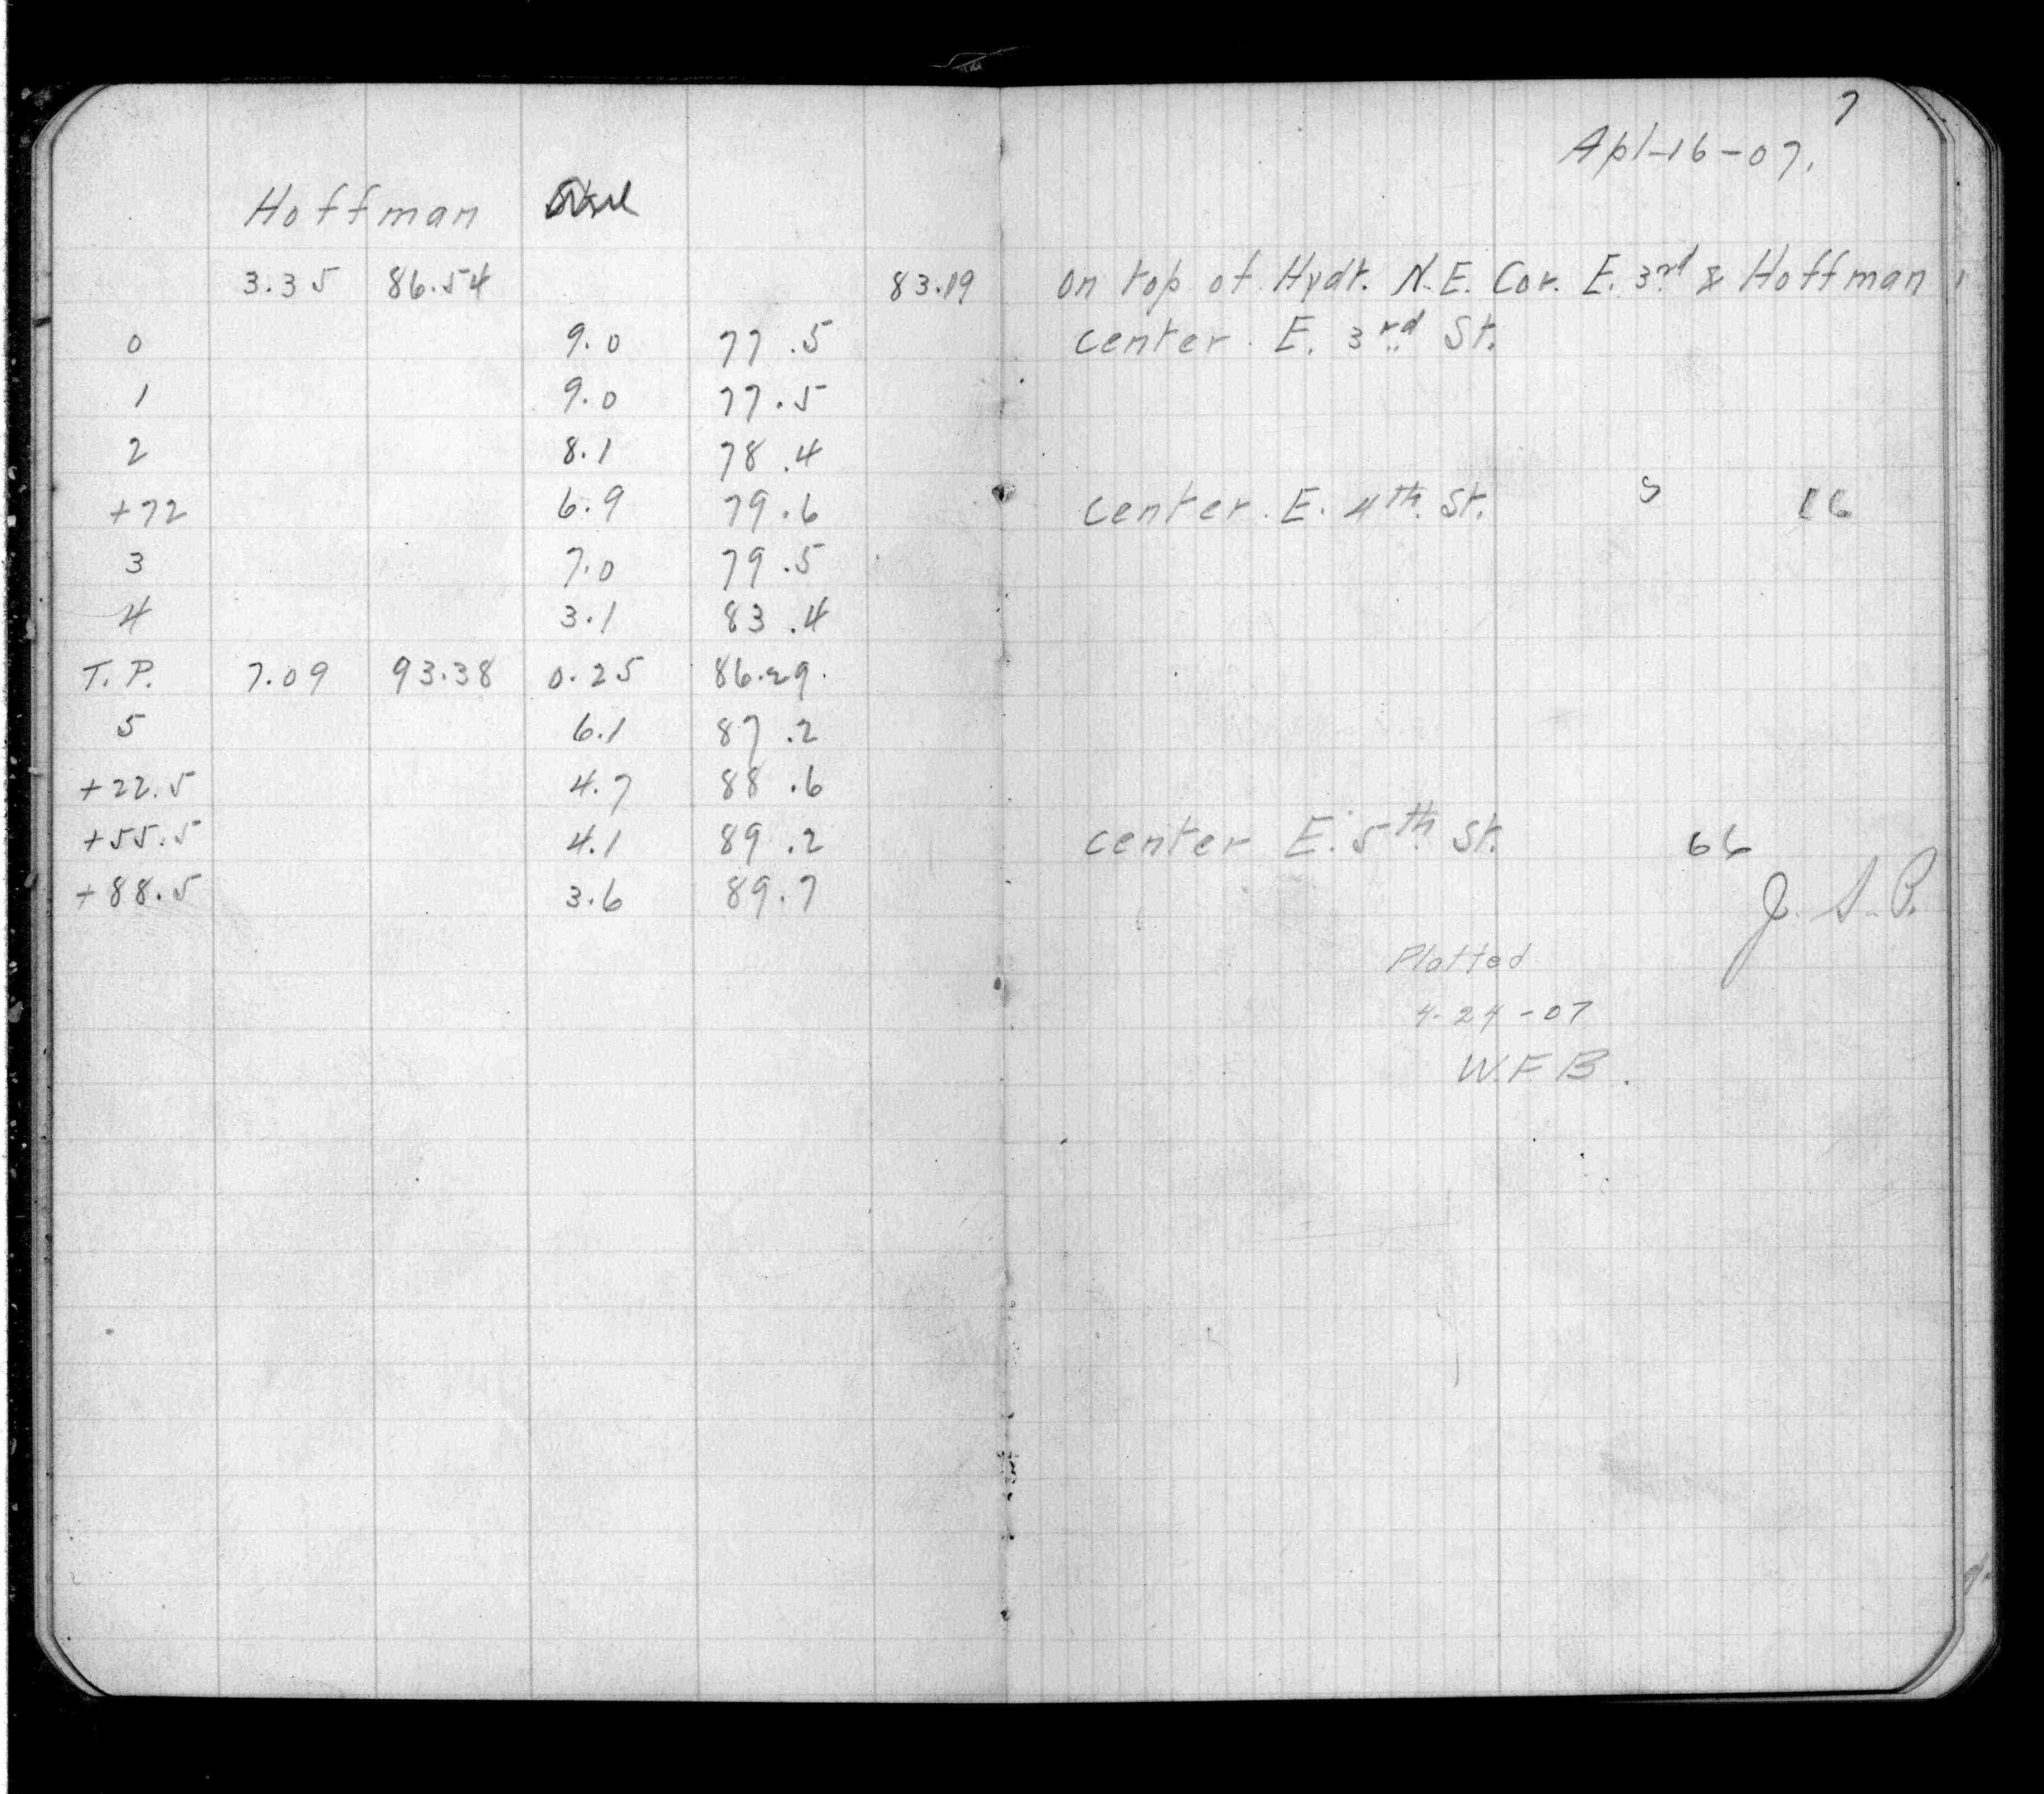 7
Apl-16-07.
Hoffman
3.35 86.54 83.19 on top of Hydt. N.E. Cor. E. 3rd & Hoffman
0 9.0 77.5 center E. 3rd St.
1 9.0 77.5
2 8.1 78.4
+72 6.9 79.6 center E. 4th St. 16
3 7.0 79.5
4 3.1 83.4
T.P. 7.09 93.38 0.25 86.29
5 6.1 87.2
+22.5 4.7 88.6
+55.5 4.1 89.2 center E. 5th St. 66
+88.5 3.6 89.7 J. S. P.
Plotted
4-24-07
W.F.B.